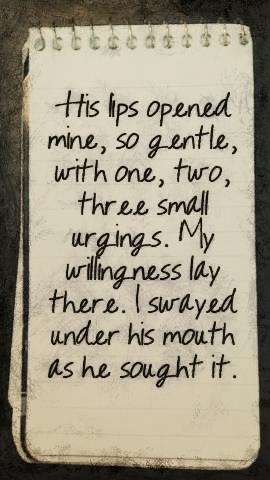 His lips opened
mine, so gentle,
with one, two,
three small
urgings. My
willingness lay
there. I swayed
under his mouth
as he sought it.